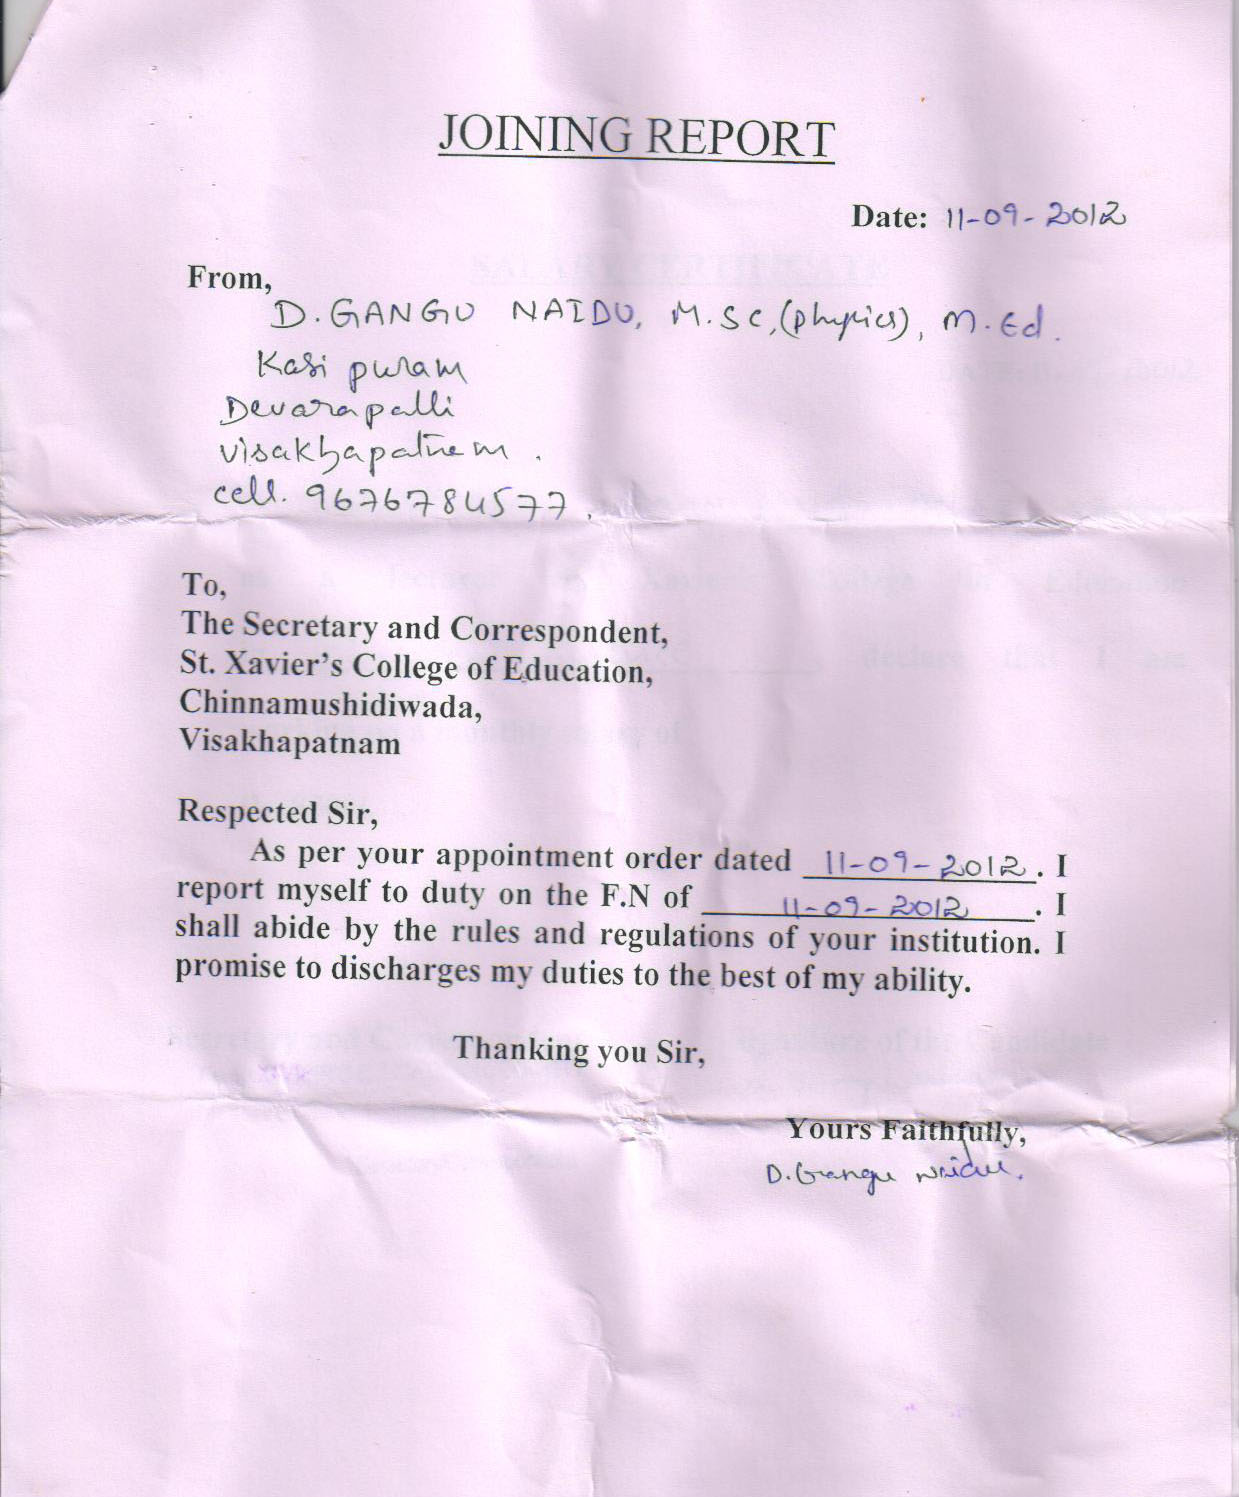 JOINING REPORT
Date: 11-09-2012
From,
D. GANGU NAIDU, M.Sc,(physics), M.Ed.
Kasi puram
Devarapalli
Visakhapatnam.
cell. 9676784577.
To,
The Secretary and Correspondent,
St. Xavier's College of Education,
Chinnamushidiwada,
Visakhapatnam
Respected Sir,
As per your appointment order dated 11-09-2012. I
report myself to duty on the F.N of 11-09-2012. I
shall abide by the rules and regulations of your institution. I
promise to discharges my duties to the best of my ability.
Thanking you Sir,
Yours Faithfully,
D. Gangu Naidu.